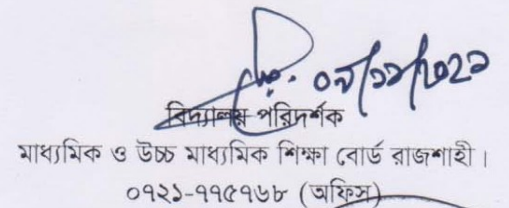 ০৯/১১/২০২১
বিদ্যালয় পরিদর্শক
মাধ্যমিক ও উচ্চ মাধ্যমিক শিক্ষা বোর্ড রাজশাহী।
০৭২১-৭৭৫৭৬৮ (অফিস)